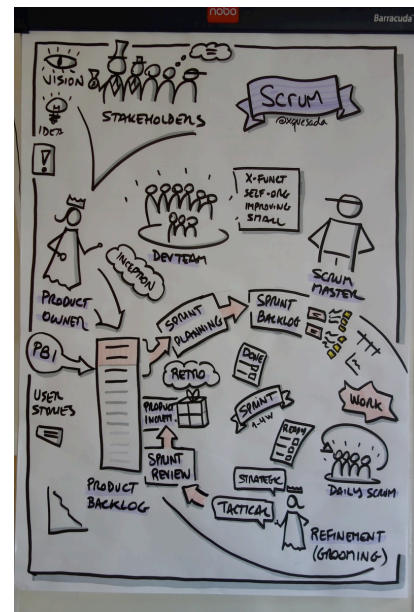 nobo
Barracuda
VISION
IDEA
STAKEHOLDERS
SCRUM
@xquesada
!
X-FUNCT
SELF-ORG
IMPROVING
SMALL
DEV TEAM
INCEPTION
PRODUCT
OWNER
SCRUM
MASTER
SPRINT
PLANNING
SPRINT
BACKLOG
PBI
DONE
RETRO
USER
STORIES
PRODUCT
INCREM.
SPRINT
1-4W
WORK
READY
SPRINT
REVIEW
DAILY SCRUM
STRATEGIC
TACTICAL
PRODUCT
BACKLOG
REFINEMENT
(GROOMING)